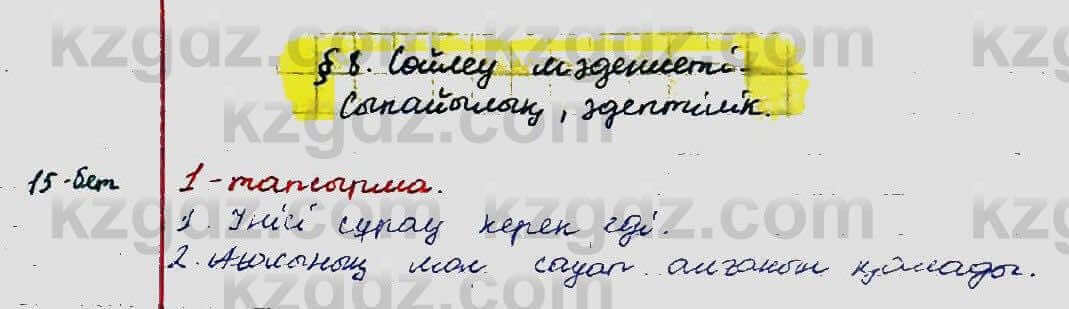 § 8. Сөйлеу мәдениеті-
Сыпайылық, әдептілік.
15-бет 1-тапсырма.
1. Інісі сұрау керек еді.
2. мал сауап алғанын қаламады.
kzgdz.com